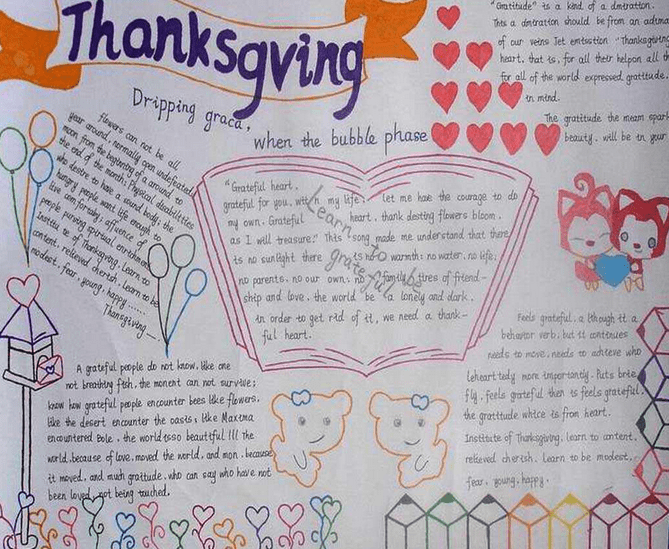 Thanksgving
Dripping graca,
when the bubble phase
"Gratitude" is a kind of a dmtration.
This a dmtration should be from an
of our veins Jet emtsstion "Thanksgiving
heart, that is, for all their helpon all
for all of the world expressed gratitude.
in mind.
The gratitude the meam
beauty. will be in your
flowers can not be all
year around, normally open undefeated;
moon from the beginning of a around to
the end of the month; Physical disabilities
who desire to have a sound body; the
hungry people want life enough to
live on forsaby; affluence of
people pursing spiritual enrichment
Institu te of Thanksgiving. Learn to
content, relieved cherish. Learn to be
modest, fear, young, happy......
Thanksgiving—
"Grateful heart.
grateful for you. with my life; let me have the courage to do
my own. Grateful heart. thank desting flowers bloom.
as I will treasure:" This song made me understand that there
is no sunlight there is no warmth; no water. no life;
no parents. no our own. no family. tires of friend-
ship and love. the world be a lonely and dark.
in order to get rid of it, we need a thank-
ful heart.
Learn to be
grateful
A grateful people do not know. like one
not breathing fish, the monent can not survive;
know how grateful people encounter bees like flowers.
like the desert encounter the oasis, like Maxtma
encountered Bole. the world isso beauttful !!! The
world. because of love. moved the world. and mon. because
it moved, and much grattude. who can say who have not
been loved, not being touched.
Feels grateful. a lthough it a
behavior verb. but it continues
needs to move. needs to achteve who
leheart tedly more importantly. Puts
fly. feels grateful then is feels grateful.
the gratttude whtce is from heart.
Institute of Thanksgiving. learn to content.
relieved cherish. Learn to be modest.
fear, young, happy.